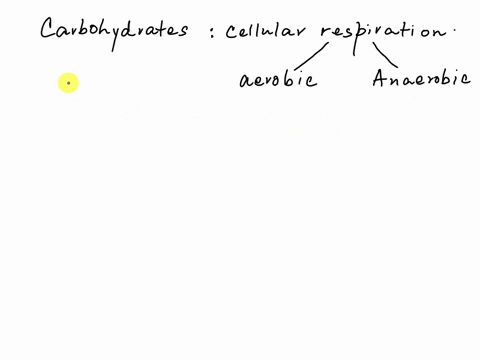 Carbohydrates : cellular respiration.
aerobic Anaerobic